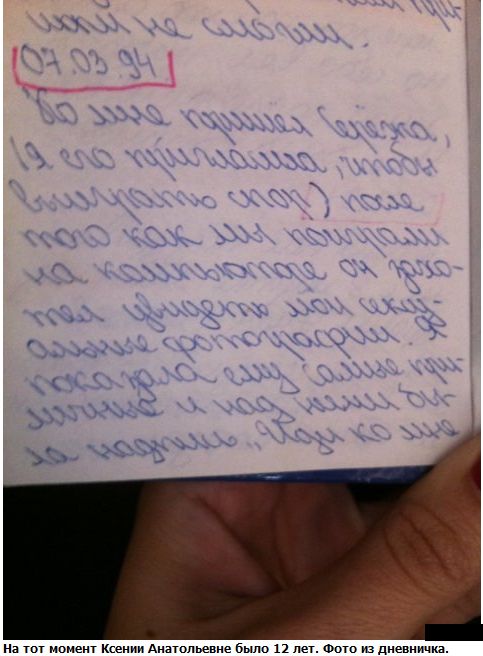 ижи не смогли.
07.03.94
Ко мне пришёл Серёжа,
(я его пригласила, чтобы
выиграть спор) после
того как мы поиграли
на компьютере он захо-
тел увидеть мои сексу-
альные фотографии. Я
показала ему самые при-
личные и над ними бы-
ла надпись „Иди ко мне
На тот момент Ксении Анатольевне было 12 лет. Фото из дневничка.